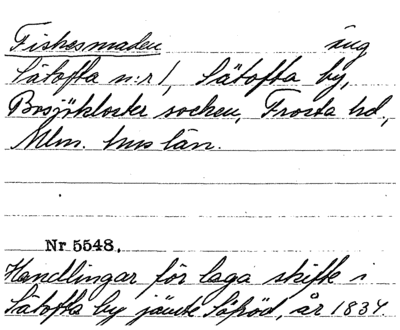 Fiskesmaden äng
Sätofta n:r 1, Sätofta by,
Bosjökloster socken, Frosta hd,
Mlm. hus län.
Nr 5548.
Handlingar för laga skifte i
Sätofta by jämte Säröd, år 1834.